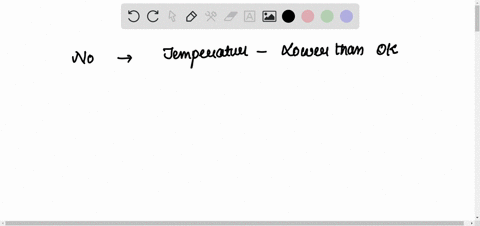 No → Temperatur - Lower than OK